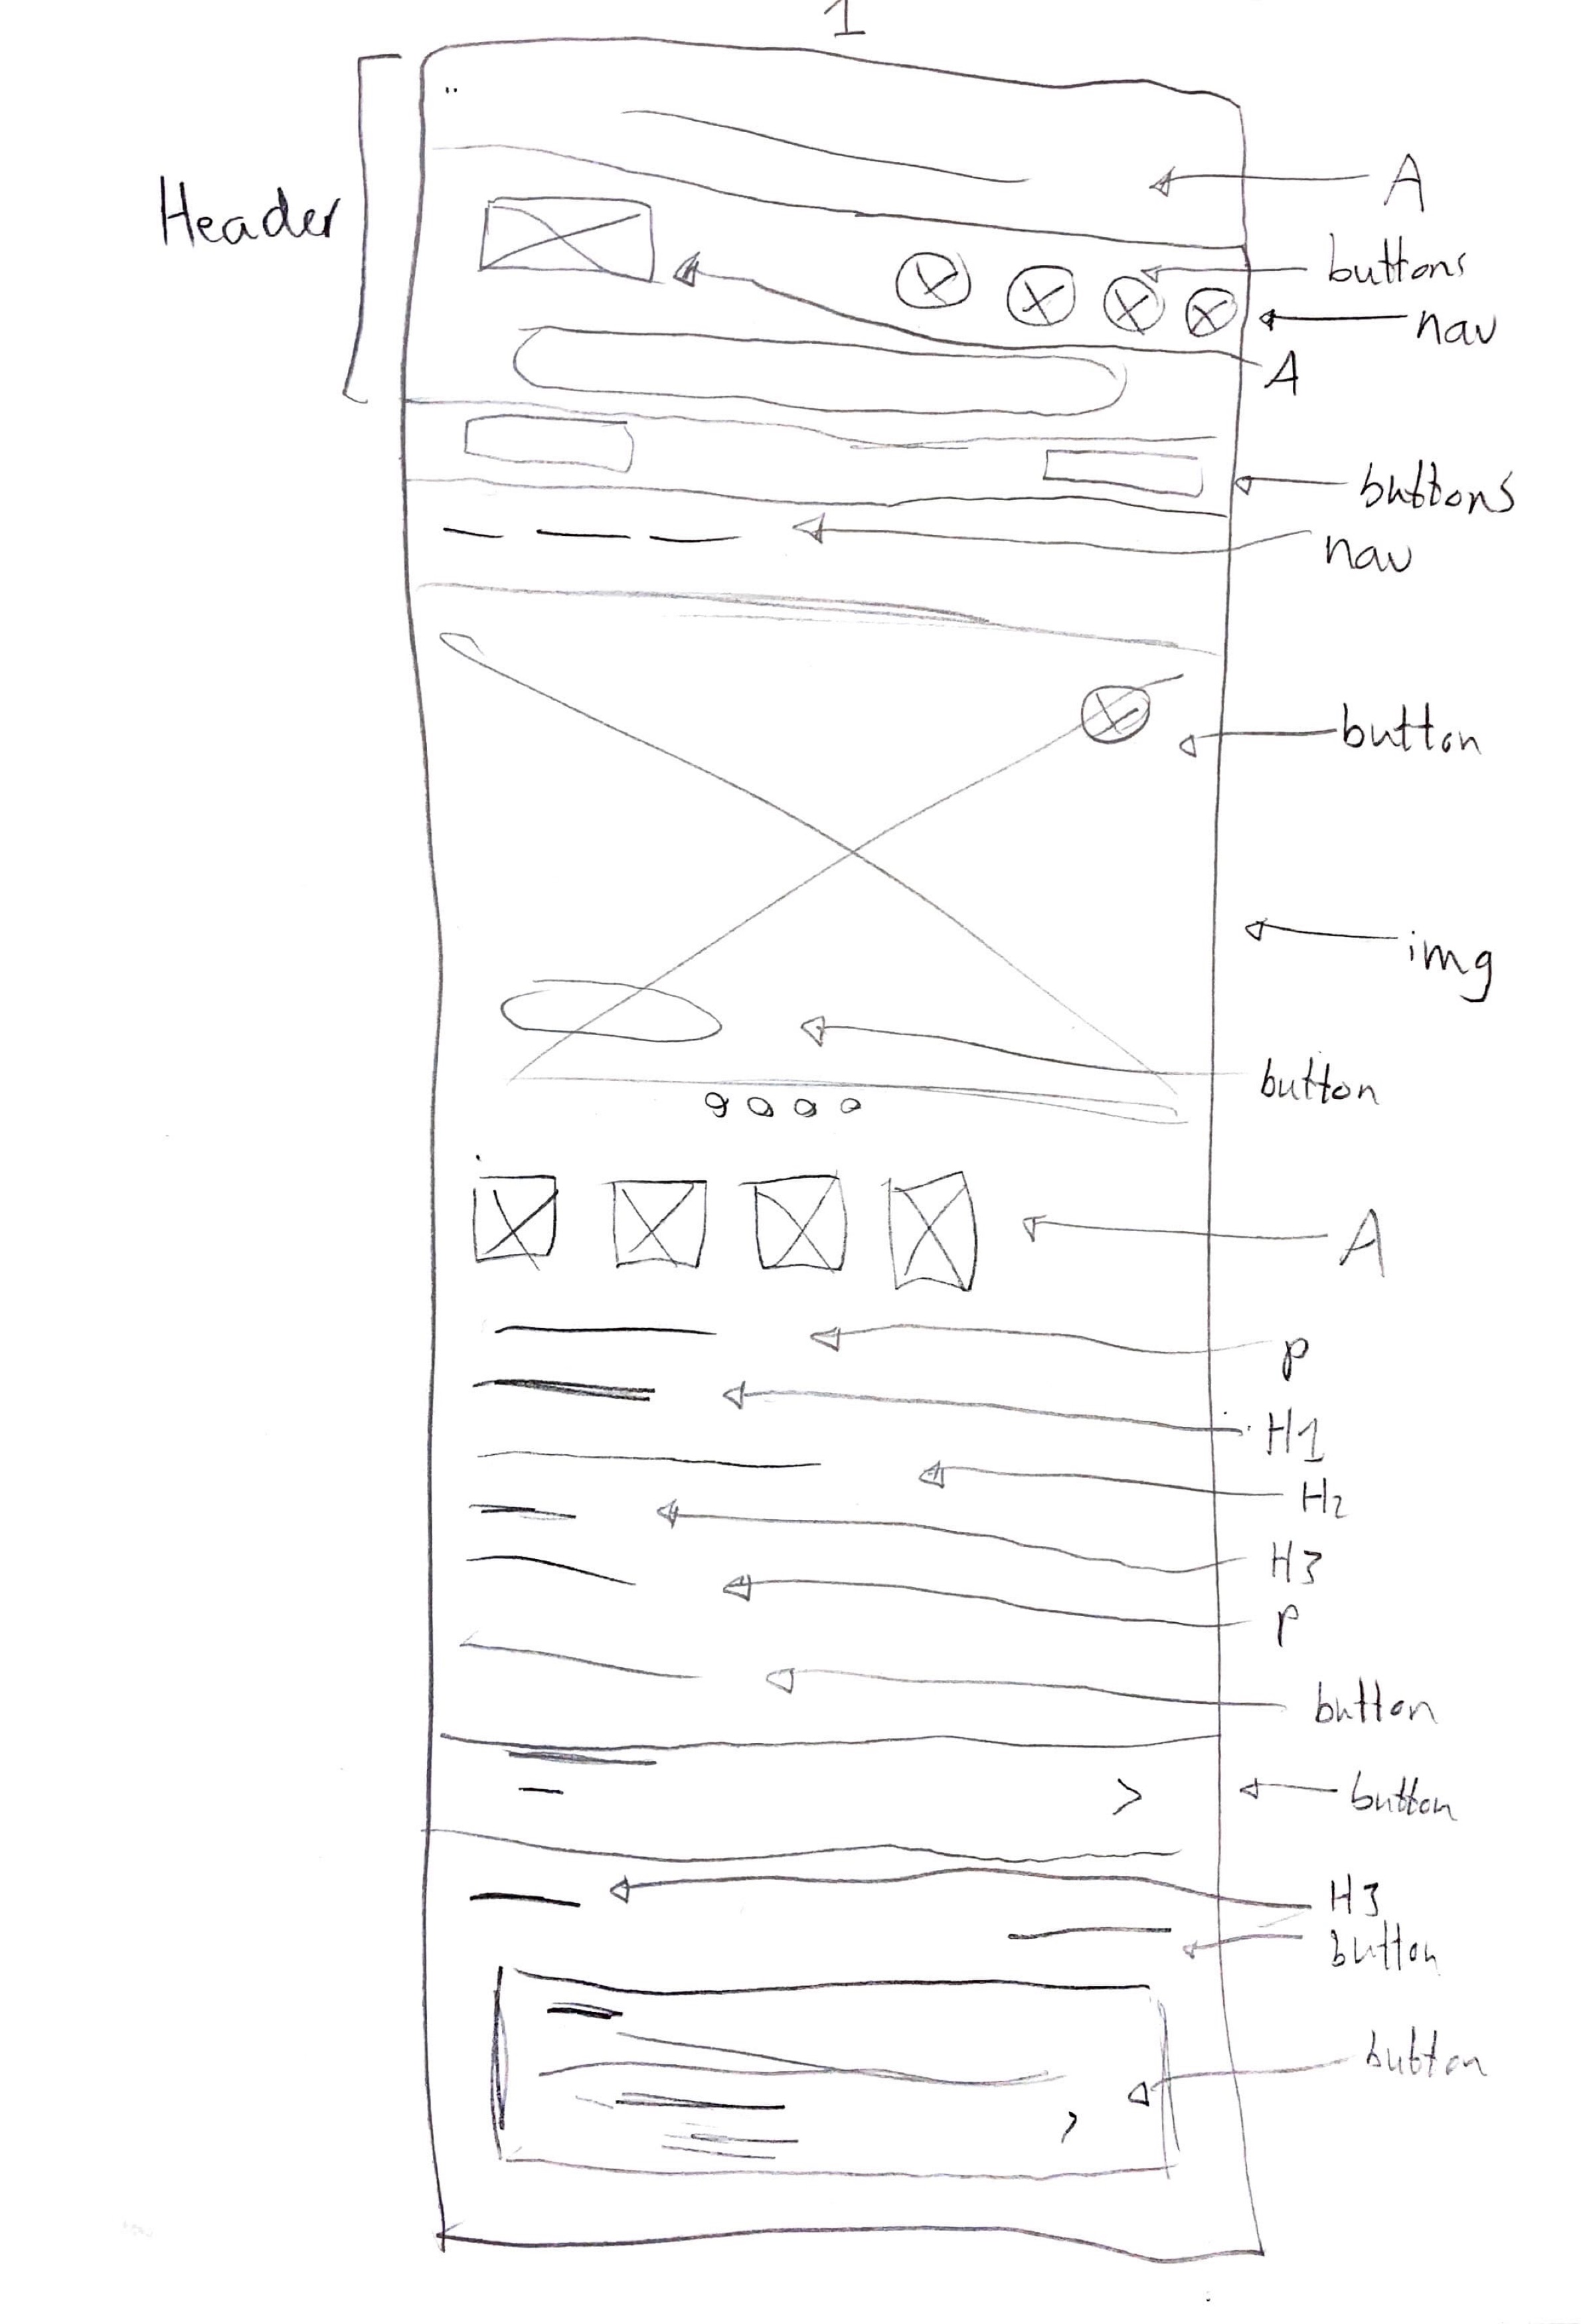 1
Header
A
buttons
nav
A
buttons
nav
button
img
button
A
P
H1
H2
H3
P
button
button
H3
button
button